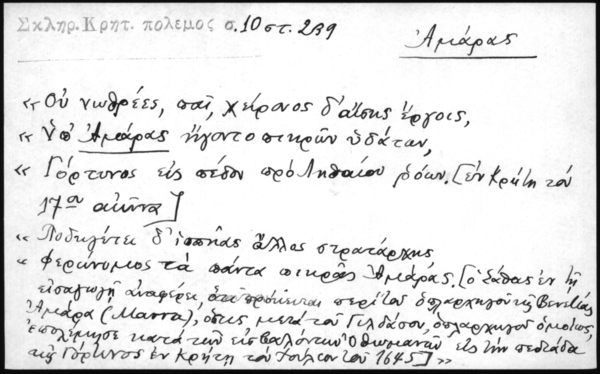 Σκληρ. Κρητ. πόλεμος σ. 10 στ. 239
Ἀμάρας
« Οὐ νωθρέες, παῖ, χείρονος δ' αἴσης ἔργοις,
« Ὑπ' Ἀμάρας ἤγοντο πικρῶν ὑδάτων,
« Γόρτυνος εἰς πέδον πρὸ Ληθαίου ῥόων. [ἐν Κρήτῃ τοῦ
17ου αἰῶνα]
« Ποδηγέτει δ' ἱππῆας ἄλλος στρατάρχης
« φερώνυμος τὰ πάντα πικρᾶς Ἀμάρας. [ὁ Ξάθας ἐν τῇ
εἰσαγωγῇ ἀναφέρει, ὅτι πρόκειται περὶ τοῦ ὁπλαρχηγοῦ τῆς Βενετίας
Ἀμάρα (Μαννα), ὅστις μετὰ τοῦ Γιλδάσου, ὁπλαρχηγοῦ ὁμοίως,
ἐπολέμησε κατὰ τῶν εἰσβαλόντων Ὀθωμανῶν εἰς τὴν πεδιάδα
τῆς Γόρτυνος ἐν Κρήτῃ τὸν Ἰούλιον τοῦ 1645] »